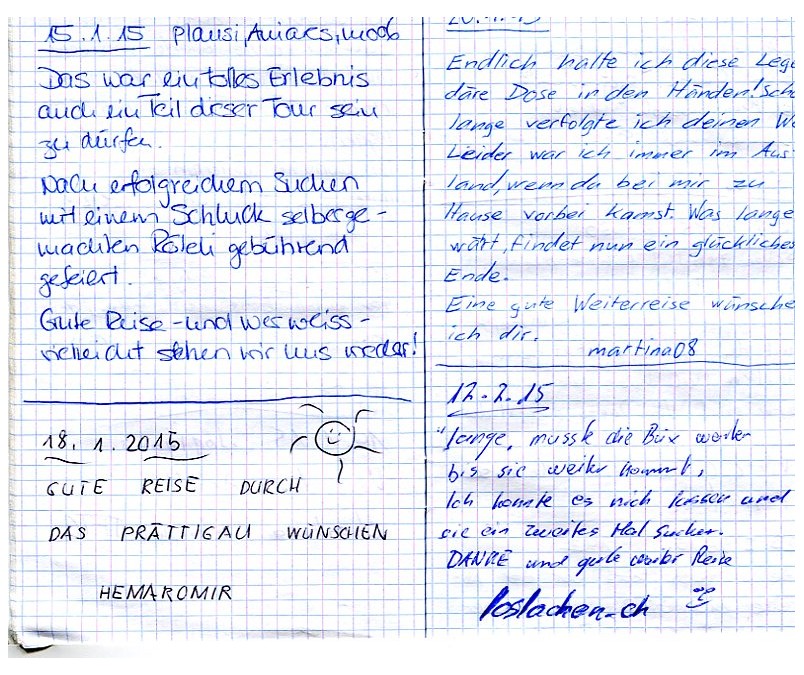 15.1.15 Plausi, Aniaks, moob
Das war ein tolles Erlebnis
auch ein Teil dieser Tour sein
zu dürfen.
Nach erfolgreichem Suchen
mit einem Schluck selberge-
machten Röteli gebührend
gefeiert.
Gute Reise - und wer weiss -
vielleicht sehen wir uns wieder!
18.1.2015
GUTE REISE DURCH
DAS PRÄTTIGAU WÜNSCHEN
HEMAROMIR
Endlich halte ich diese Lege
däre Dose in den Händen! Scho
lange verfolgte ich deinen We
Leider war ich immer im Aus-
land, wenn du bei mir zu
Hause vorbei kamst. Was lange
währt, findet nun ein glückliches
Ende.
Eine gute Weiterreise wünsche
ich dir.
martina08
12.2.15
"Lange, musste die Büx warten
bis sie weiter kommt,
Ich konnte es nich lassen und
sie ein zweites Mal suchen.
DANKE und gute weiter Reise
loslachen.ch